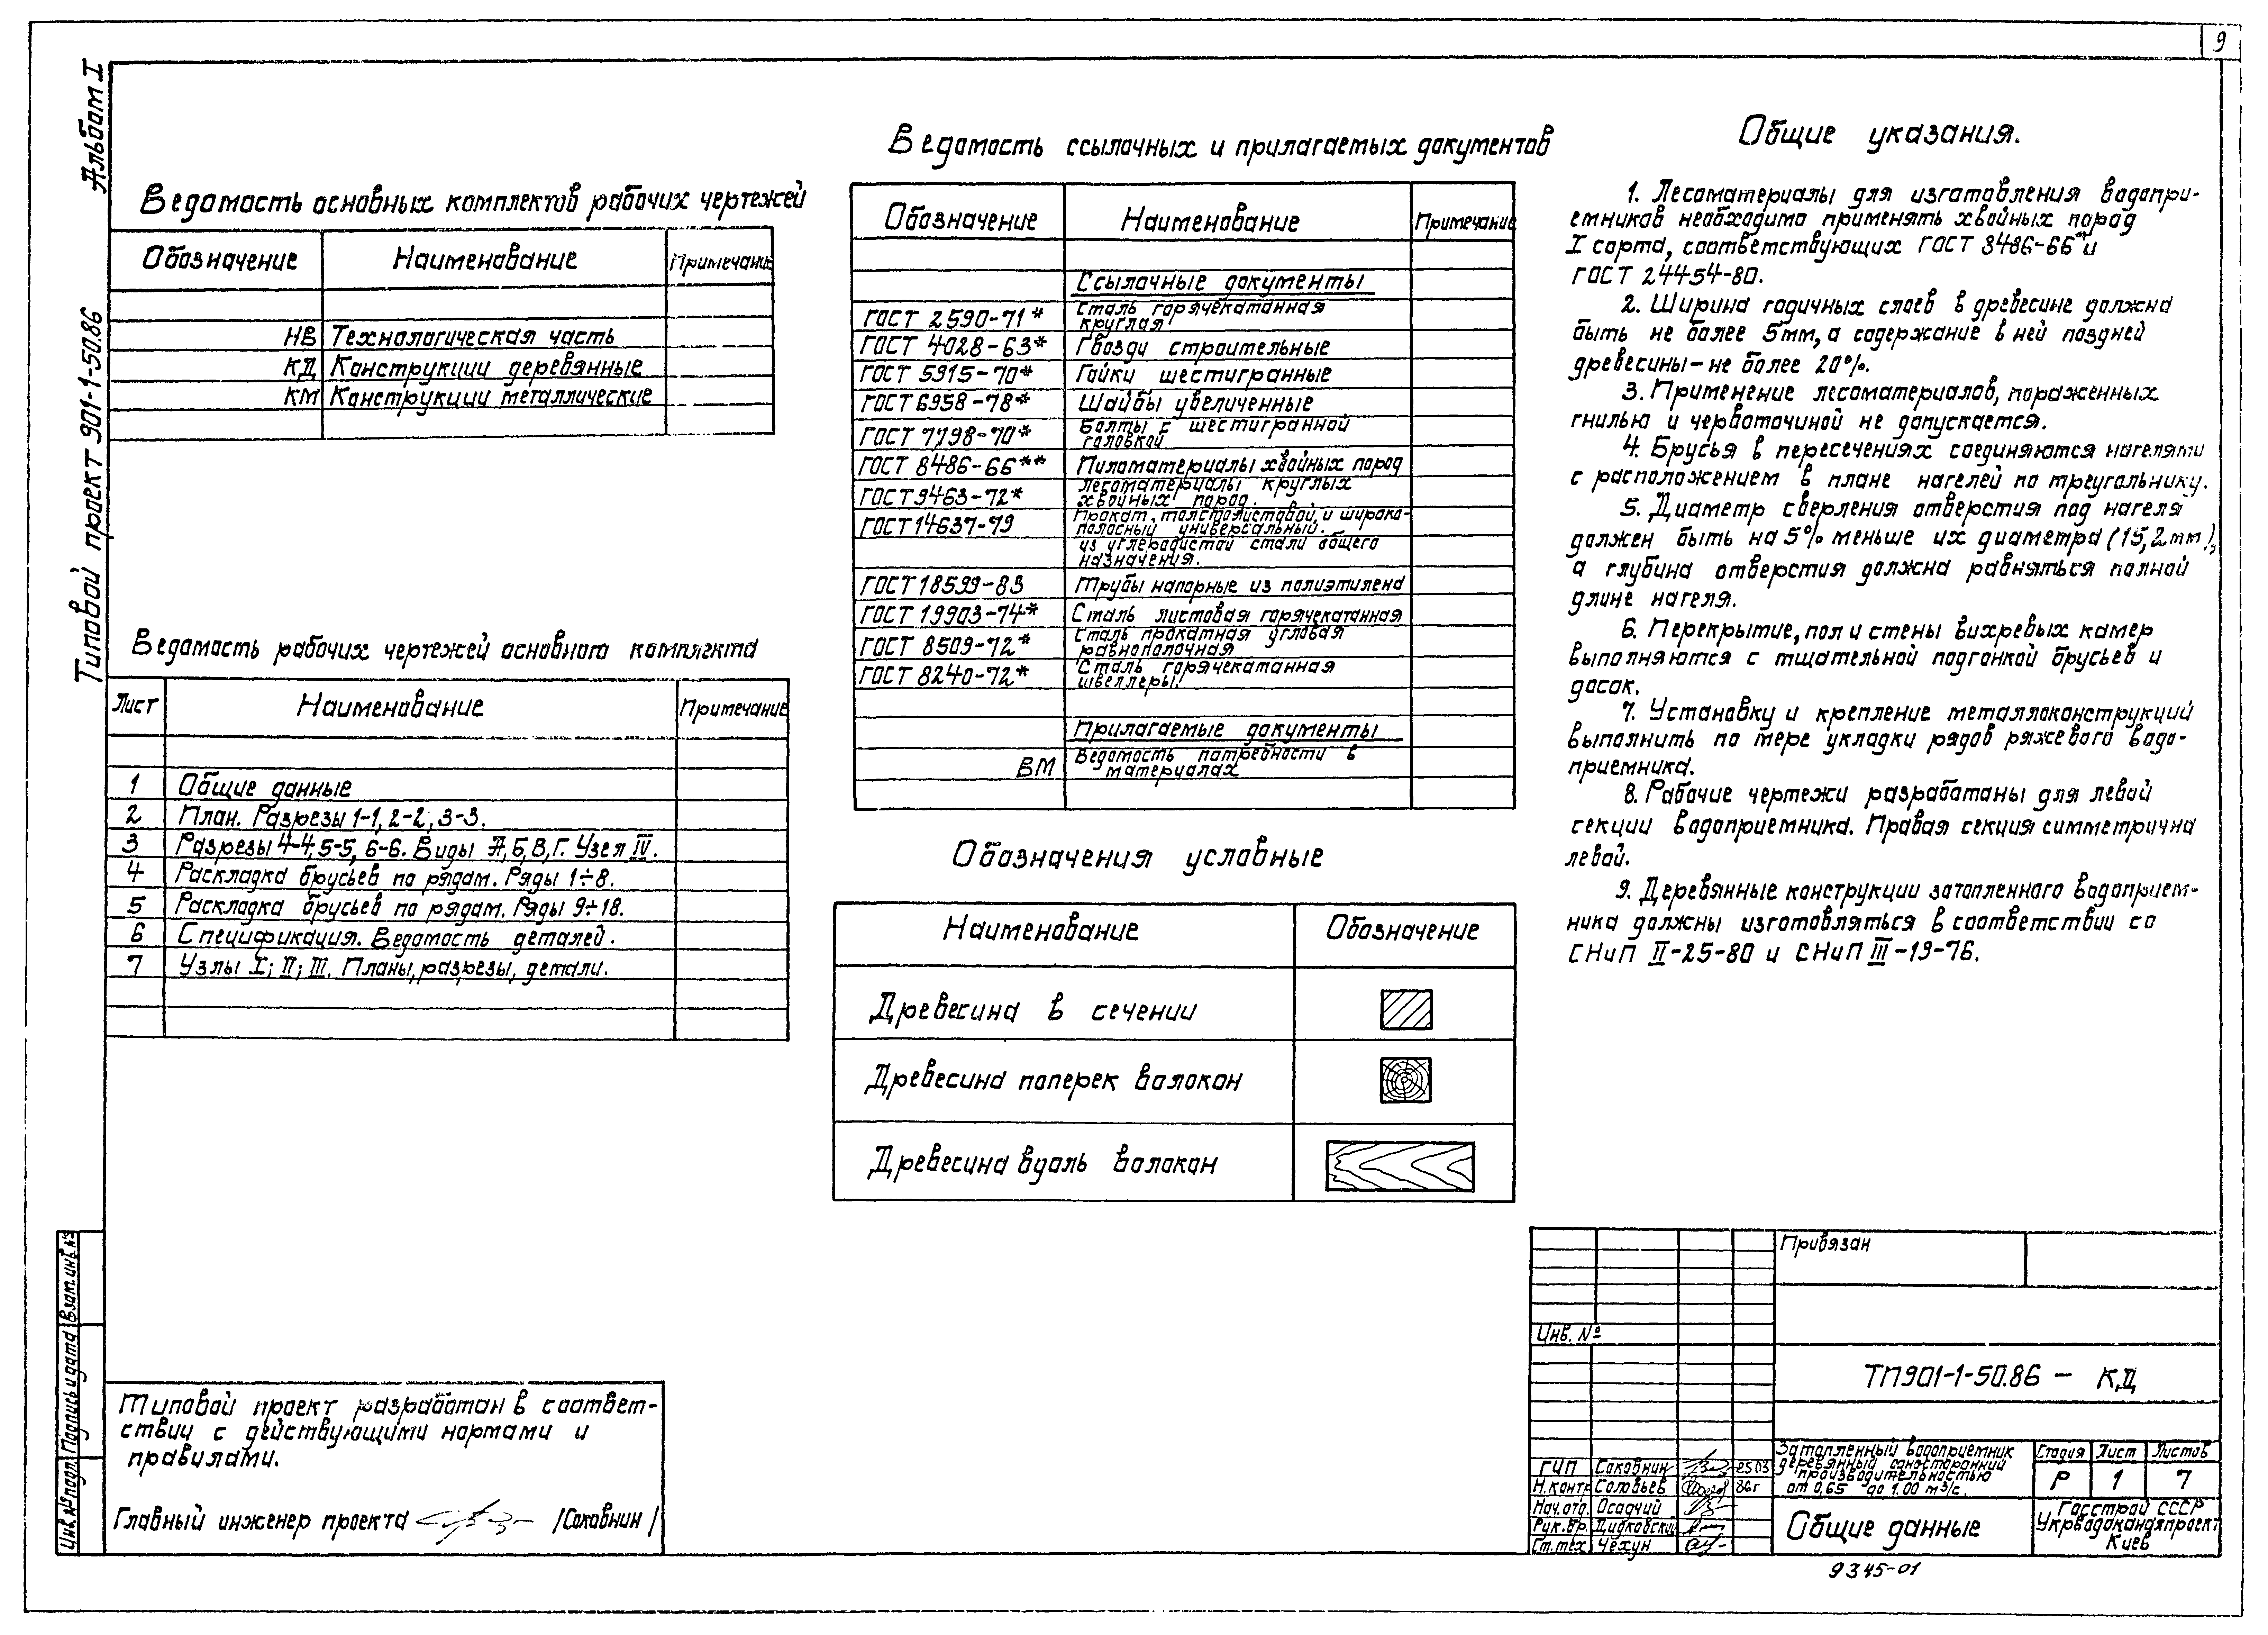 9
Альбом I
Типовой проект 901-1-50.86
Ведомость основных комплектов рабочих чертежей
Обозначение Наименование Примечание
НВ Технологическая часть
КД Конструкции деревянные
КМ Конструкции металлические
Ведомость рабочих чертежей основного комплекта
Лист Наименование Примечание
1 Общие данные
2 План. Разрезы 1-1, 2-2, 3-3.
3 Разрезы 4-4, 5-5, 6-6. Виды А, Б, В, Г. Узел IV.
4 Раскладка брусьев по рядам. Ряды 1÷8.
5 Раскладка брусьев по рядам. Ряды 9÷18.
6 Спецификация. Ведомость деталей.
7 Узлы I; II; III. Планы, разрезы, детали.
Ведомость ссылочных и прилагаемых документов
Обозначение Наименование Примечание
Ссылочные документы
ГОСТ 2590-71* Сталь горячекатанная
круглая
ГОСТ 4028-63* Гвозди строительные
ГОСТ 5915-70* Гайки шестигранные
ГОСТ 6958-78* Шайбы увеличенные
ГОСТ 7798-70* Болты с шестигранной
головкой
ГОСТ 8486-66** Пиломатериалы хвойных пород
ГОСТ 9463-72* Лесоматериалы круглых
хвойных пород.
ГОСТ 14637-79 Прокат толстолистовой и широко-
полосный универсальный.
из углеродистой стали общего
назначения.
ГОСТ 18599-83 Трубы напорные из полиэтилена
ГОСТ 19903-74* Сталь листовая горячекатанная
ГОСТ 8509-72* Сталь прокатная угловая
равнополочная
ГОСТ 8240-72* Сталь горячекатанная
швеллеры.
Прилагаемые документы
ВМ Ведомость потребности в
материалах
Обозначения условные
Наименование Обозначение
Древесина в сечении
Древесина поперек волокон
Древесина вдоль волокон
Общие указания.
1. Лесоматериалы для изготовления водопри-
емников необходимо применять хвойных пород
I сорта, соответствующих ГОСТ 8486-66** и
ГОСТ 24454-80.
2. Ширина годичных слоев в древесине должна
быть не более 5мм, а содержание в ней поздней
древесины - не более 20%.
3. Применение лесоматериалов, пораженных
гнилью и червоточиной не допускается.
4. Брусья в пересечениях соединяются нагелями
с расположением в плане нагелей по треугольнику.
5. Диаметр сверления отверстия под нагеля
должен быть на 5% меньше их диаметра (15,2мм),
а глубина отверстия должна равняться полной
длине нагеля.
6. Перекрытие, пол и стены вихревых камер
выполняются с тщательной подгонкой брусьев и
досок.
7. Установку и крепление металлоконструкций
выполнить по мере укладки рядов ряжевого водо-
приемника.
8. Рабочие чертежи разработаны для левой
секции водоприемника. Правая секция симметрична
левой.
9. Деревянные конструкции затопленного водоприем-
ника должны изготовляться в соответствии со
СНиП II-25-80 и СНиП III-19-76.
Взам. инв. №
Подпись и дата
Инв. № подл.
Типовой проект разработан в соответ-
ствии с действующими нормами и
правилами.
Главный инженер проекта /Соковнин/
Привязан
Инв. №
ТП901-1-50.86 - КД
ГИП Соковнин
Н.контр Соловьев 86г
Нач.отд. Осадчий
Рук.бр. Дидковский
Ст.тех. Чехун
Затопленный водоприемник
деревянный односторонний
производительностью
от 0,65 до 1.00 м³/с.
Стадия Лист Листов
Р 1 7
Общие данные
Госстрой СССР
Укрводоканалпроект
Киев
9345-01